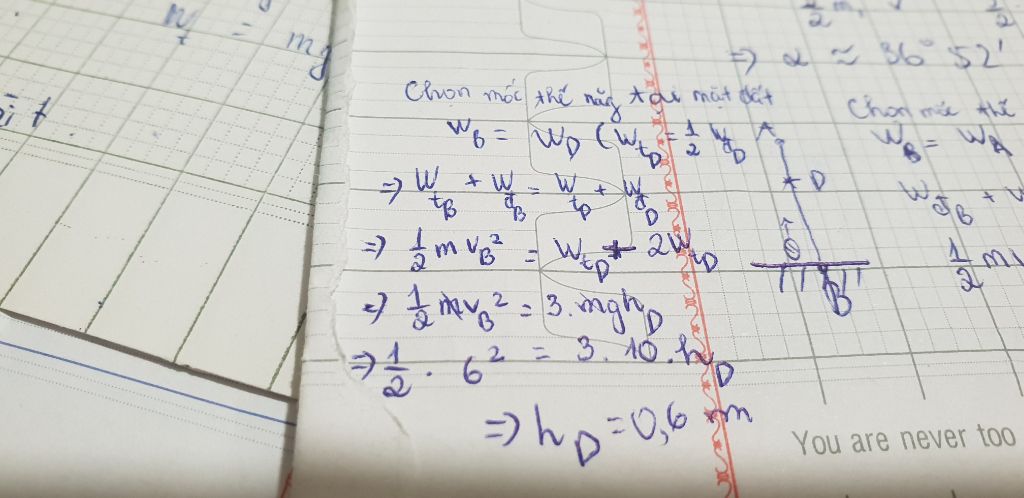 W_t = mg
Chọn mốc thế năg tại mặt đất
W_B = W_D (W_{t_D} = \frac{1}{2} W_{đ_D}
=> W_{t_B} + W_{đ_B} = W_{t_D} + W_{đ_D}
=> \frac{1}{2} m v_B^2 = W_{t_D} + 2W_{t_D}
=> \frac{1}{2} m v_B^2 = 3. mgh_D
=> \frac{1}{2} . 6^2 = 3. 10. h_D
=> h_D = 0,6 m
=> α ≈ 36° 52'
Chọn mốc thế
W_B = W_A
W_{đ_B} +
\frac{1}{2} m
A
D
O
B
You are never too